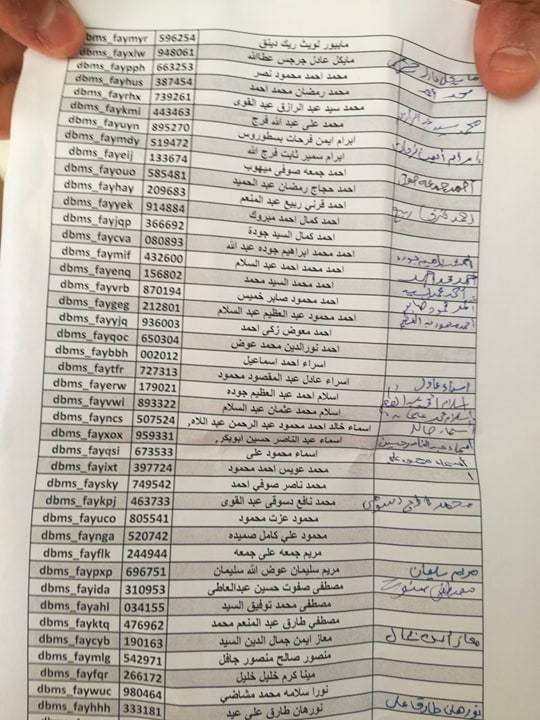 dbms_faymyr 596254 مايبور لويث ريك دينق
dbms_fayxlw 948061 مايكل عادل جرجس عطاالله
dbms_faypph 663253 محمد احمد محمود نصر
dbms_fayhus 387454 محمد رمضان محمد احمد
dbms_fayrhx 739261 محمد سيد عبد الرازق عبد القوى
dbms_faykml 443463 محمد على عبد الله فرج
dbms_fayuyn 895270 ابرام ايمن فرحات بسطوروس
dbms_faymdy 519472 ابرام سمير ثابت فرج الله
dbms_fayeij 133674 احمد جمعه صوفى ميهوب
dbms_fayouo 585481 احمد حجاج رمضان عبد الحميد
dbms_fayhay 209683 احمد قرني ربيع عبد المنعم
dbms_fayyek 914884 احمد كمال احمد مبروك
dbms_fayjqp 366692 احمد كمال السيد جودة
dbms_faycva 080893 احمد محمد ابراهيم جوده عبد الله
dbms_faymif 432600 احمد محمد احمد عبد السلام
dbms_fayenq 156802 احمد محمد السيد محمد
dbms_fayvrb 870194 احمد محمود صابر خميس
dbms_faygeg 212801 احمد محمود عبد العظيم عبد السلام
dbms_fayyjq 936003 احمد معوض زكى احمد
dbms_fayqoc 650304 احمد نورالدين محمد عوض
dbms_faybbh 002012 اسراء احمد اسماعيل
dbms_faytfr 727313 اسراء عادل عبد المقصود محمود اسراء عادل
dbms_fayerw 179021 اسلام احمد عبد العظيم جوده
dbms_fayvwi 893322 اسلام محمد عثمان عبد السلام
dbms_fayncs 507524 اسماء خالد احمد محمود عبد الرحمن عبد اللاه, اسماء خالد
dbms_fayxox 959331 اسماء عبد الناصر حسين ابوبكر, اسماء عبد الناصر حسين
dbms_fayqsi 673533 اسماء محمود على اسماء محمود على
dbms_fayixt 397724 محمد عويس احمد محمود
dbms_faysky 749542 محمد ناصر صوفي احمد
dbms_faykpj 463733 محمد نافع دسوقى عبد القوى
dbms_fayuco 805541 محمود عزت محمود
dbms_faynga 520742 محمود علي كامل صميده
dbms_fayflk 244944 مريم جمعه على جمعه
dbms_faypxp 696751 مريم سليمان عوض الله سليمان مريم سليمان
dbms_fayida 310953 مصطفى صفوت حسين عبدالعاطى
dbms_fayahl 034155 مصطفى محمد توفيق السيد
dbms_fayktq 476962 مصطفي طارق عبد المنعم محمد
dbms_faycyb 190163 معاز ايمن جمال الدين السيد معاز ايمن جمال
dbms_faymlg 542971 منصور صالح منصور جافل
dbms_fayfqr 266172 مينا كرم خليل خليل
dbms_faywuc 980464 نورا سلامه محمد مشاضي
dbms_fayhhh 333181 نورهان طارق علي عيد نورهان طارق على